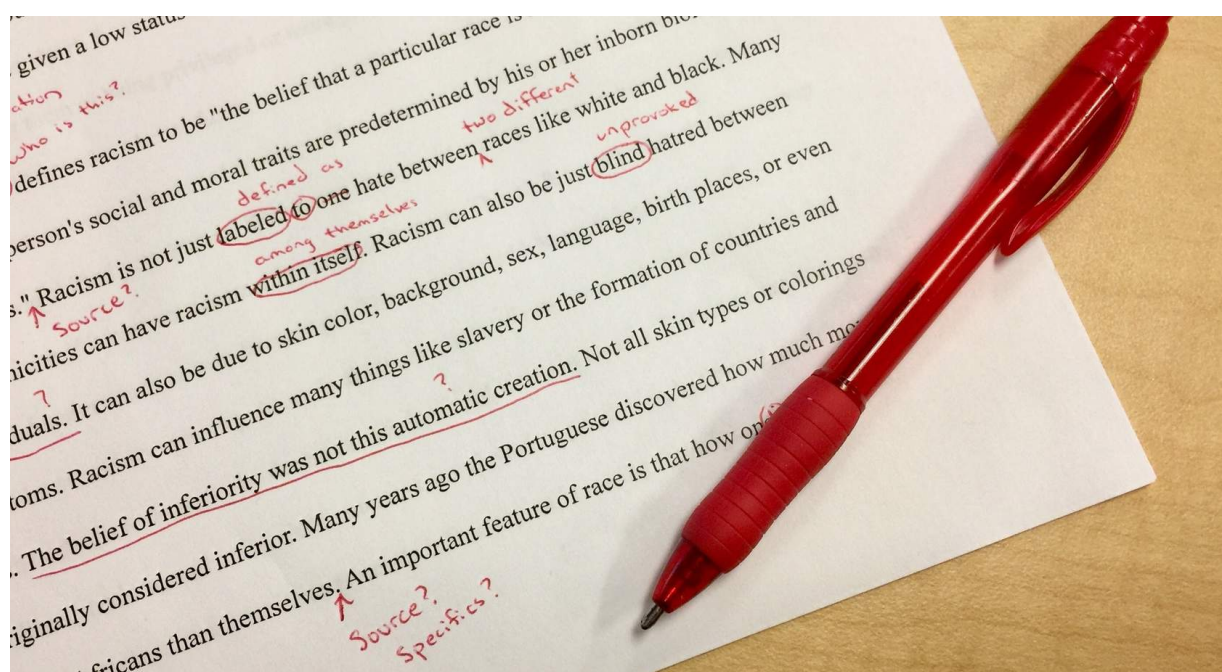 given a low status
ation
who is this?
defines racism to be "the belief that a particular race is
two different
person's social and moral traits are predetermined by his or her inborn
defined as
unprovoked
s." Racism is not just labeled to one hate between races like white and black. Many
Source?
among themselves
nicities can have racism within itself. Racism can also be just blind hatred between
?
duals. It can also be due to skin color, background, sex, language, birth places, or even
toms. Racism can influence many things like slavery or the formation of countries and
?
. The belief of inferiority was not this automatic creation. Not all skin types or colorings
riginally considered inferior. Many years ago the Portuguese discovered how much
fricans than themselves. An important feature of race is that how
Source?
Specifics?